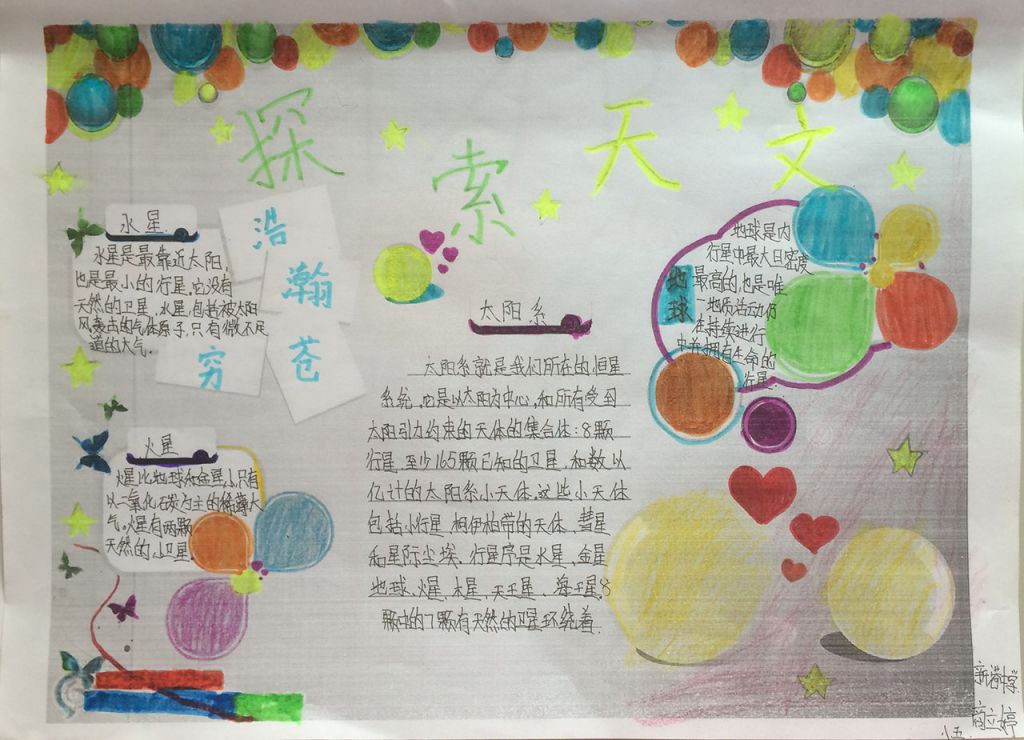 探索天文
浩
瀚
苍
穷
水星
水星是最靠近太阳,
也是最小的行星.它没有
天然的卫星,水星,包括被太阳
风轰击的气体原子,只有微不足
道的大气.
火星
火星比地球和金星小,只有
以二氧化石炭为主的稀薄大
气。火星有两颗
天然的小卫星
太阳系
太阳系就是我们所在的恒星
系统,它是以太阳为中心,和所有受到
太阳引力约束的天体的集合体:8颗
行星,至少165颗已知的卫星,和数以
亿计的太阳系小天体,这些小天体
包括小行星,柯伊柏带的天体,彗星
和星际尘埃,行星序是水星,金星
地球,火星,木星,天王星、海王星,8
颗中的7颗有天然的卫星环绕着.
地球
地球是内
行星中最大且密度
最高的,也是唯
一地质活动仍
在持续进行
中并拥有生命的
行星.
新浴中学
商立婷
小五